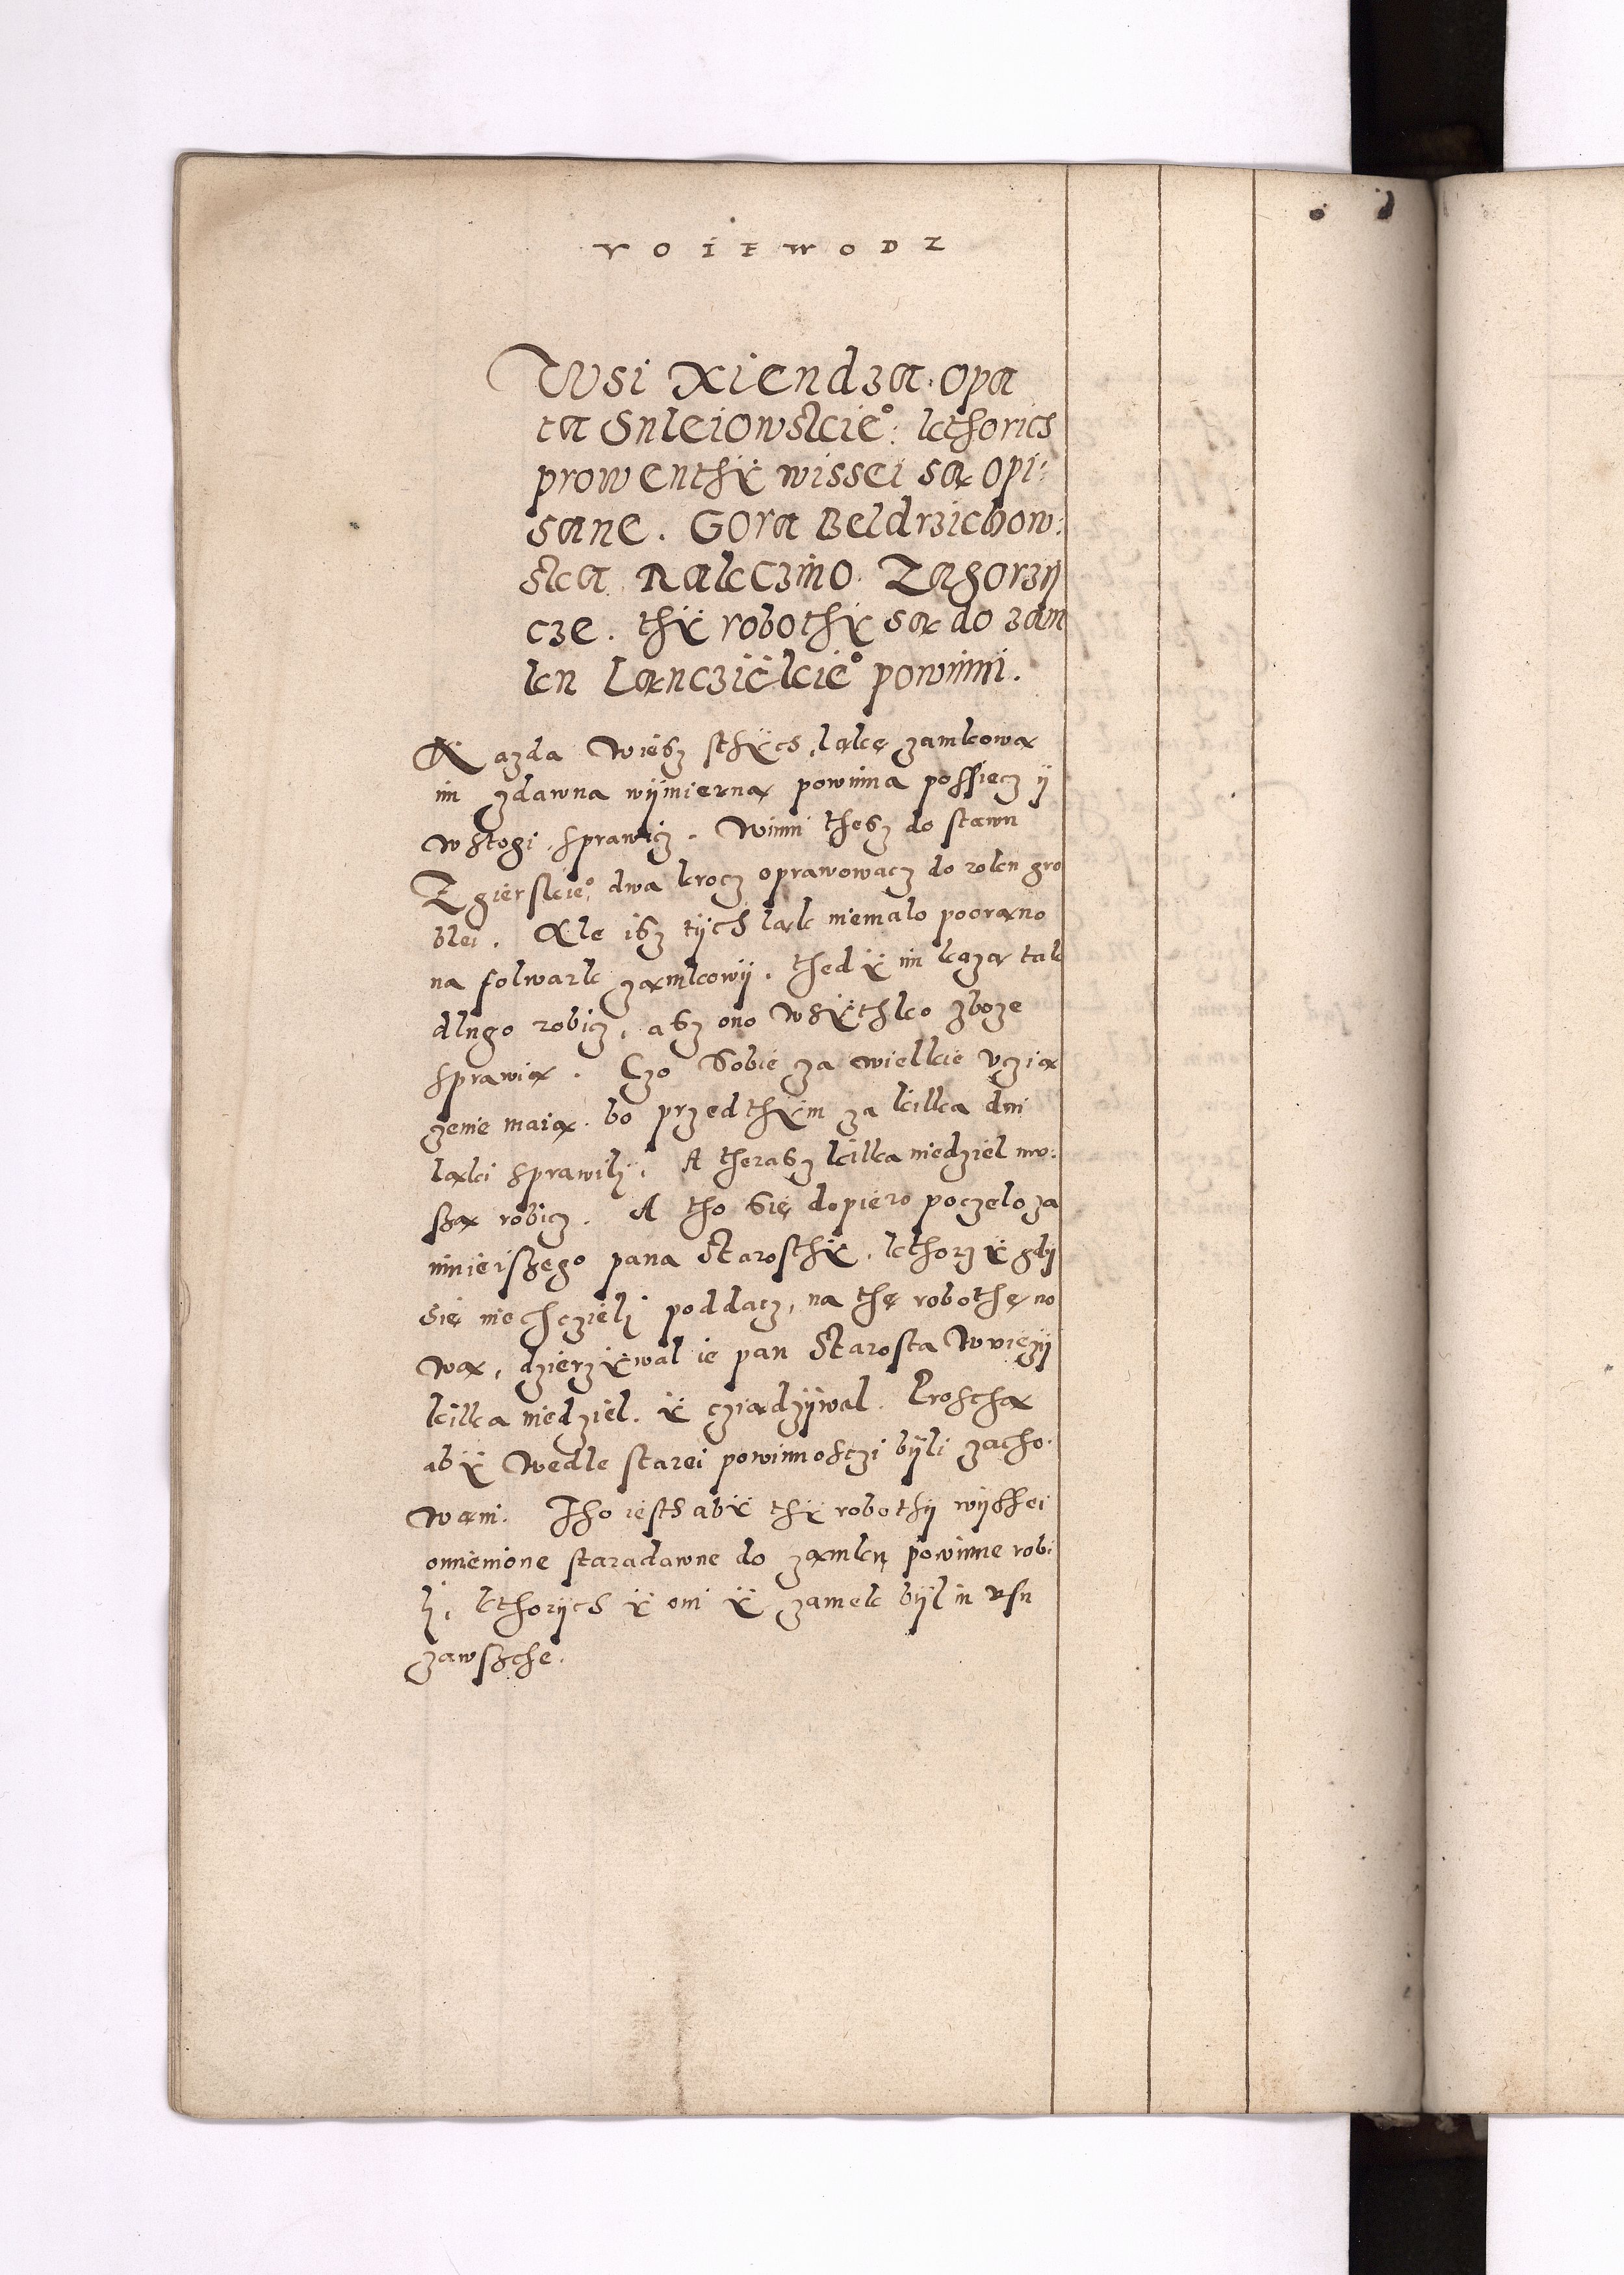 VOIEWODZ
Wsi Xiendza opa
ta Suleiowskie°: kthorich
prowenthÿ wissei są opi:
sane. Gora Beldrzichow:
ska Nakczino. Zagorzÿ
cze. thÿ robothÿ są do zam
ku Lanczÿckie° powinni.
Kazda Wiesz sthÿch łąkę zamkową
im zdawna wÿmierną powinna possiecz ÿ
w stogi sprawicz. Winni thesz do stawu
Zgierskie° dwa krocz oprawowacz do roku gro
blei. Ale isz tÿch łąk niemało poorano
na folwark zamkowÿ. thedÿ im każą tak
długo robicz, asz ono wsÿthko zboze
sprawią. Czo Sobie za wielkie vczią
zenie maią. bo przedthÿm za kilka dni
łąki sprawilÿ. A therasz kilka niedziel mu:
szą robicz. A tho Się dopiero poczelo za
ninieiszego pana Starosthÿ. kthorzÿ gdÿ
się niechczielÿ poddacz, na thę robothę no
wą, dzierzÿwal ie pan Starosta W wiezÿ
kilka niedziel. ÿ cziądzÿwal. Proschą
abÿ Wedle starei powinnosczi bÿli zacho:
wani. Tho iesth abÿ thÿ robothÿ wÿssei
omienione staradawne do zamku powinne robi
lÿ, kthorÿch ÿ oni ÿ zamek bÿl in usu
zawszche.